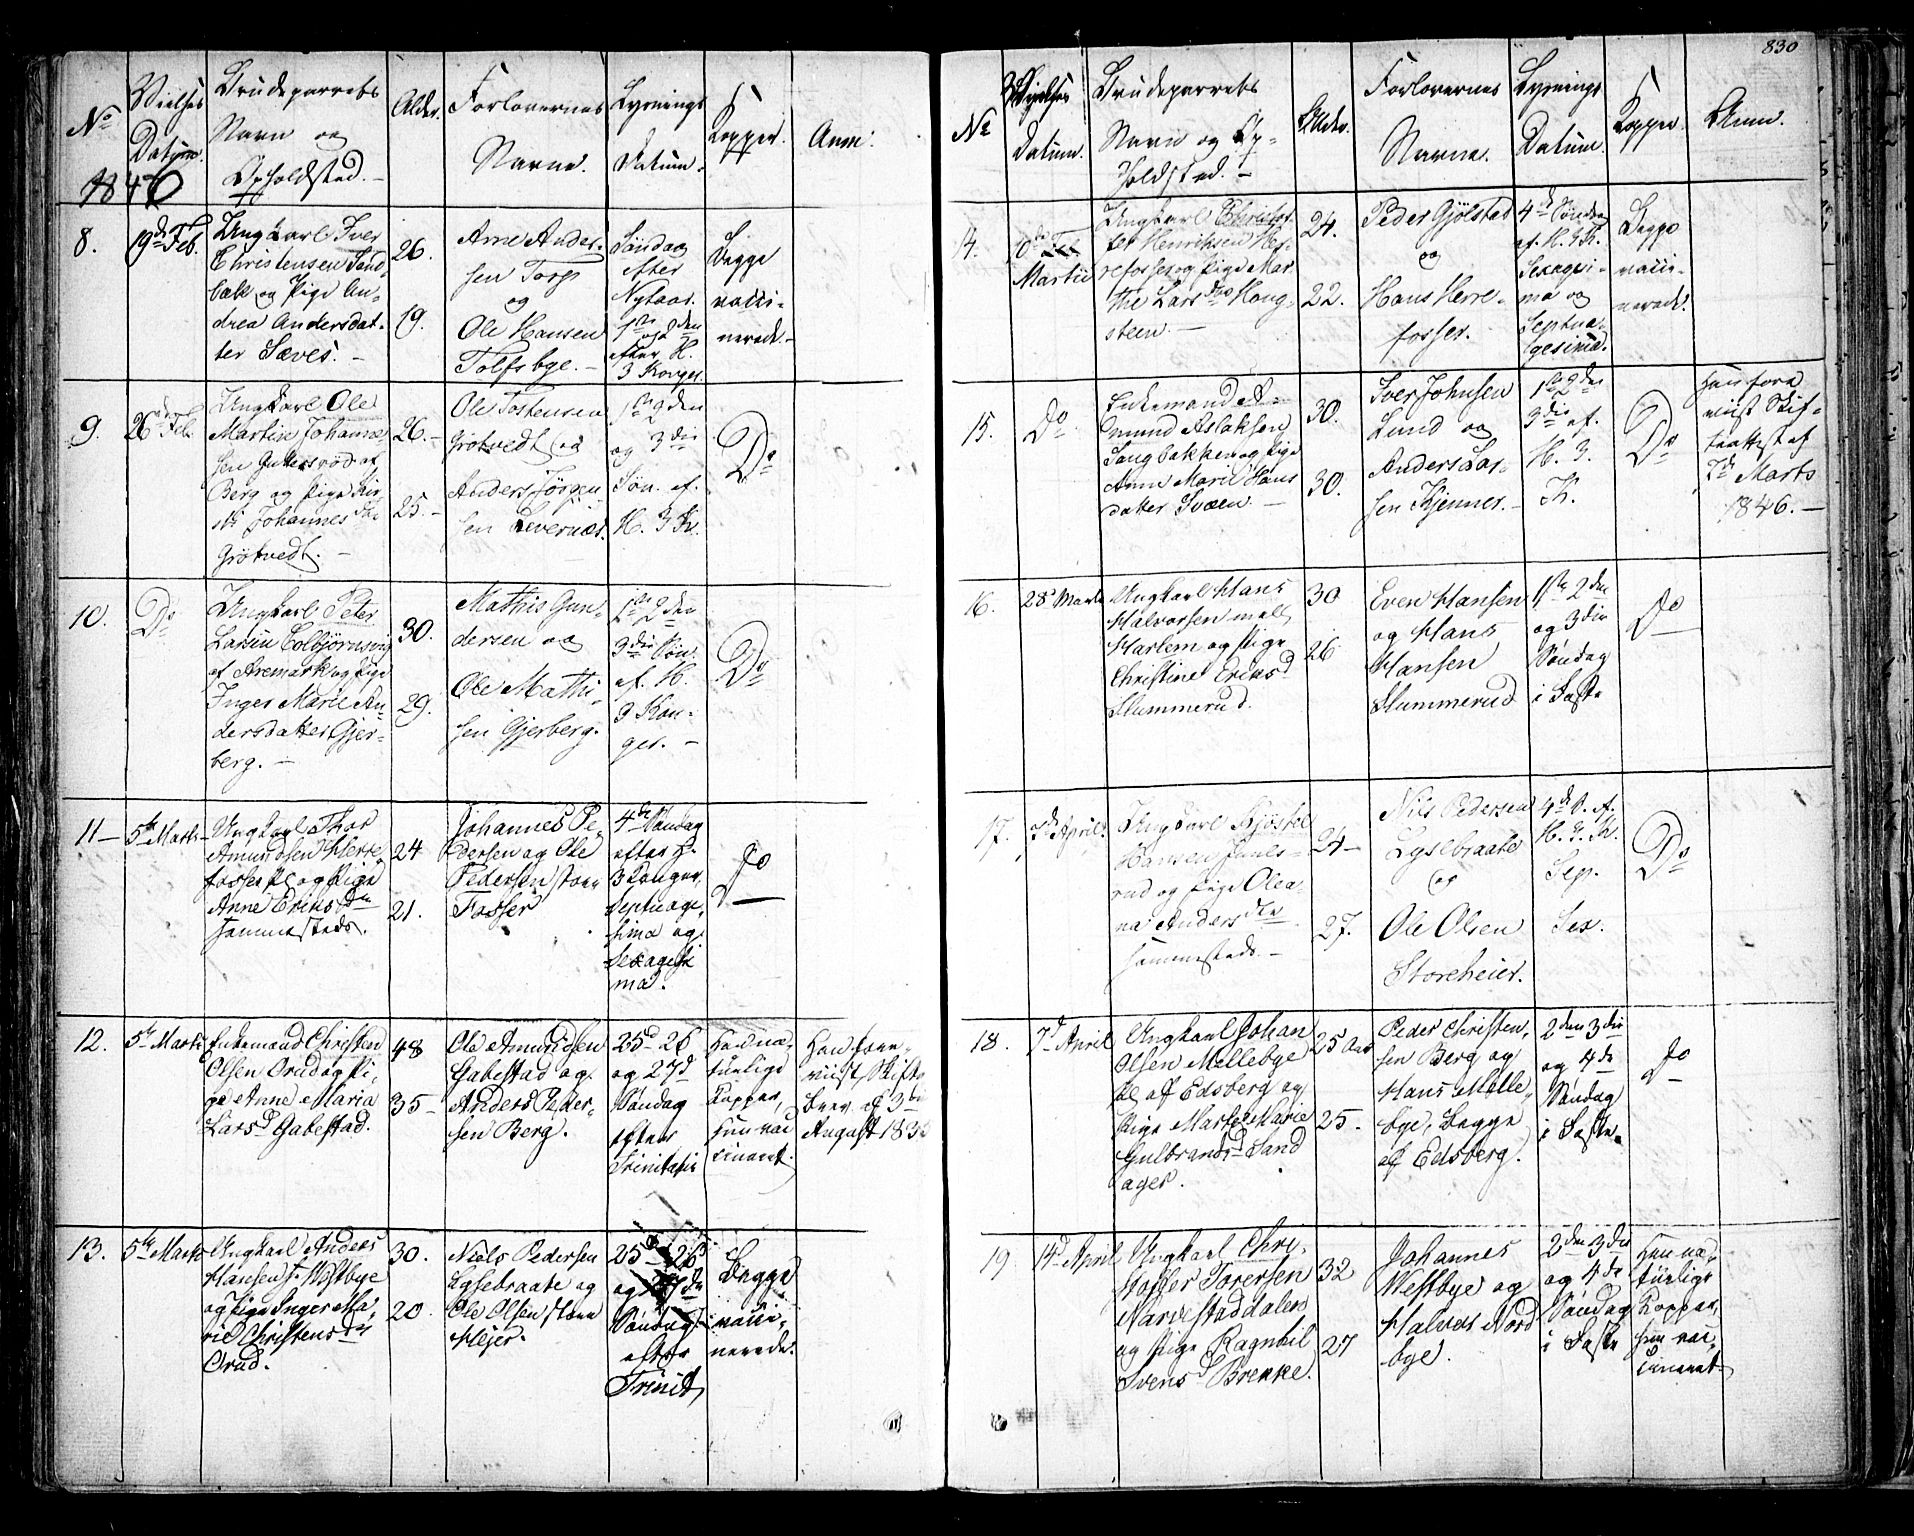 830
No
1846
Vielses
Datum.
Brudeparrets
Navn og
Opholdsted. -
Alder.
Forlovernes
Navne.
Lysnings
Datum.
Kopper.
Anm:
8.
19de Feb.
Ungkarl Iver
Christensen Sand-
bæk og Pige An-
drea Andersdat-
ter Sæves. -
26.
19.
Arne Ander-
sen Torp
og
Ole Hansen
Tolfsbye. -
Søndag
efter
Nytaar.
1ste og 2den
efter H.
3 Konger.
Begge
vacci-
nerede. -
9.
26de Feb.
Ungkarl Ole
Martin Johanne-
sen
Berg og Pige
Johannesdtr
Grøtvedt. -
26. -
25. -
Ole Tostensen
Grøtvedt og
Anders Jørgen-
sen
1ste 2den
og 3die
Søn. ef.
H. 3 K.
Do
10.
Do
Ungkarl Peter
Larsen Colbjørnsvig
af Aremark og Pige
Inger Marie An-
dersdatter Gjer-
berg. -
30.
29.
Mathis Gun-
dersen og
Ole Mathi-
sen Gjerberg.
1ste 2den
3die Søn.
ef. H.
3 Kon-
ger. -
Do
11 -
5te Marts
Ungkarl Thor
Amundsen Herre-
fosser og Pige
Anne Eriksdtr
sammesteds.
24
21.
Johannes Pe-
dersen og Ole
Pedersen
Fosser
4de Søndag
efter H.
3 Konger,
Septuage-
sima og
Sexagesi
ma.
Do
12.
5te Marts
Enkemand Christen
Olsen Krud og Pi-
ge Anne Maria
Larsd Gabestad.
48
35 -
Ole Amundsen
Gabestad og
Anders Peder-
sen Berg.
25d 26
og 27d
Søndag
efter
Trinitatis
Han na-
turlige
Kopper,
hun vac
cineret.
Han frem-
viist Skifte
brev af 3die
August 183
13.
5te Marts
Ungkarl Anders
Hansen Westbye
og Pige Inger Ma-
rie Christensdtr
Krud.
30.
20.
Niels Pedersen
Lysebraate og
Ole Olsen Store
Hejer.
25d 26d
og 27de
Søndag
efter
Trinit
Begge
vacci-
nerede.
No
Vielses
Datum.
Brudeparrets
Navn og Op-
holdsted. -
Alder.
Forlovernes
Navne.
Lysnings
Datum.
Kopper.
Anm.
14.
10de
Martii
Ungkarl Christof-
fer Henriksen Her-
refosser og Pige Mar-
the Larsdtr Haug-
steen. -
24.
22.
Peder Gjølstad
og
Hans Herre-
fosser.
4de Søndag
ef. H. 3 K.
Sexagesi-
ma og
Septua-
gesima.
Begge
vacci-
nerede.
15.
Do
Enkemand A-
mund Aslaksen
Langbakken og Pige
Anne Marie Hans
datter Svæen -
30.
30.
Iver Johnsen
Lund og
Anders Lar-
sen Kjenner. -
1ste 2den
3die ef.
H. 3.
K.
Do
Han frem
viist Skif-
teattest af
7de Marts
1846. -
16.
28d Marts
Ungkarl Hans
Halvorsen
Harlem og Pige
Christine Eriksd
Slummerud.
30
26
Even Hansen
og Hans
Hansen
Slummerud
1ste 2den
og 3die
Søndag
i Faste
Do
17.
7de April.
Ungkarl Kjøstel
Hansen
rud og Pige Olea-
na Andersdtr
sammesteds. -
24 -
27.
Nils Pedersen
Lysebraate
og
Ole Olsen
Storeheier.
4de S. ef.
H. 3. K.
Sep.
Sex.
Do
18.
7d April
Ungkarl Johan
Olsen Mellebye
af Edsberg og
Pige Marte Marie
Gulbrandsd Sand
ager.
25 Aar
25 -
Peder Christen-
sen Berg og
Hans Melle-
bye, begge
af Edsberg.
2den 3die
og 4de
Søndag
i Faste.
Do
19
14d April
Ungkarl Chri-
stoffer Torersen
Narvestaddalen
og Pige Ragnhil
Svensd Brekke.
32
27
Johannes
Westbye og
Halvor Nord
bye.
2den 3die
og 4de
Søndag
i Faste
Han na-
turlige
Kopper,
hun vac-
cineret